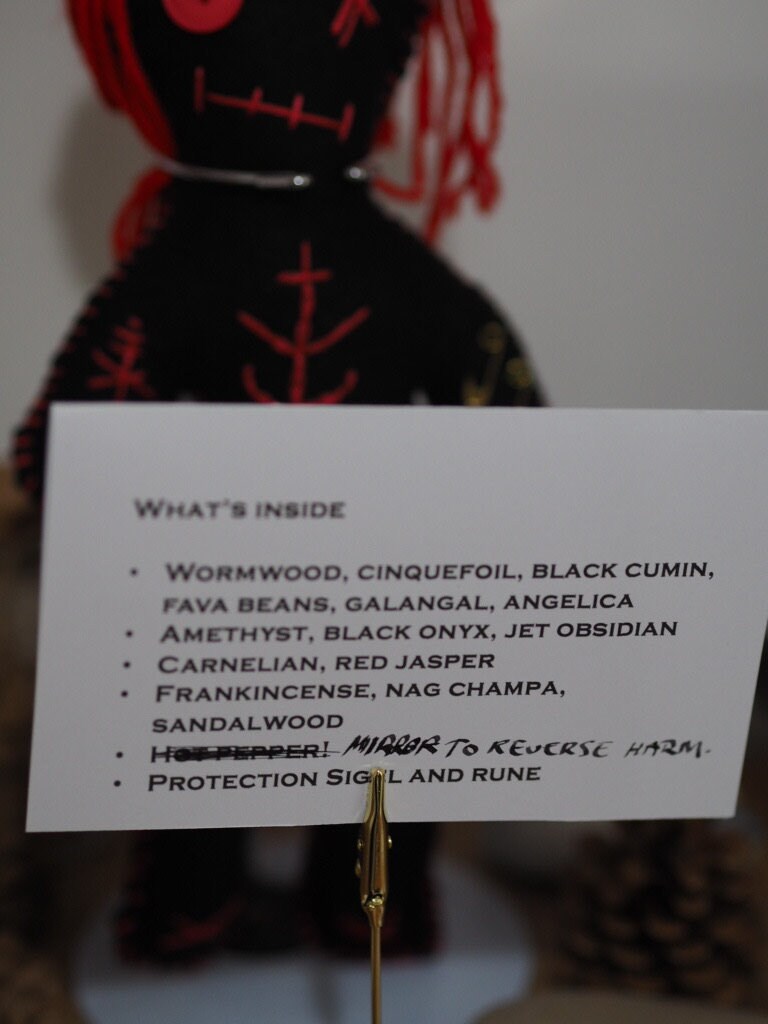 WHAT'S INSIDE
• WORMWOOD, CINQUEFOIL, BLACK CUMIN,
FAVA BEANS, GALANGAL, ANGELICA
• AMETHYST, BLACK ONYX, JET OBSIDIAN
• CARNELIAN, RED JASPER
• FRANKINCENSE, NAG CHAMPA,
SANDALWOOD
• HOT PEPPER! MIRROR TO REVERSE HARM.
• PROTECTION SIGIL AND RUNE